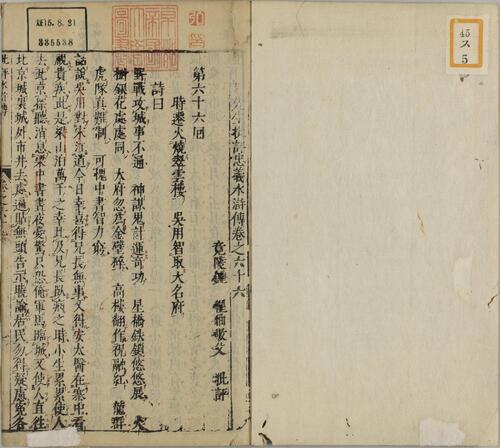 45
ス
5
大15.8.21
335538
批評忠義水滸傳卷之六十六
竟陵鍾 惺伯敬父 批評
第六十六囘
時遷火燒翠雲樓 吳用智取大名府
詩曰
野戰攻城事不通 神謀鬼計運竒功 星橋鉄鎖悠悠展 火
樹銀花處處同 大府忽為金璧碎 高樓翻作祝融紅 龍群
虎隊真難制 可愧中書智力窮
話說吳用對宋江道今日幸喜得兄長無事又得安太醫在寨中看
視貴疾此是梁山泊萬千之幸比及兄長臥病之時小生累累使人
去北京探聽消息梁中書晝夜憂驚只恐俺軍馬臨城又使人直往
北京城裏城外市井去處遍貼無頭告示曉諭居民勿得疑慮寃各